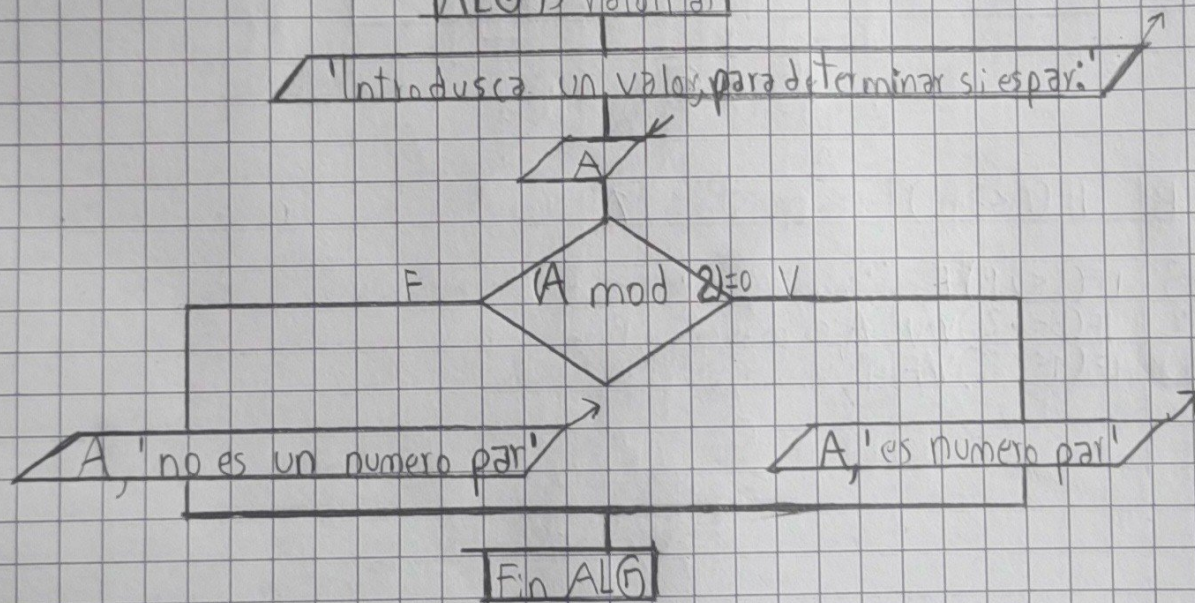 'Introdusca un valor, para determinar si es par:'
A
F (A mod 2)=0 V
A, 'no es un numero par'
A, 'es numero par'
Fin ALG